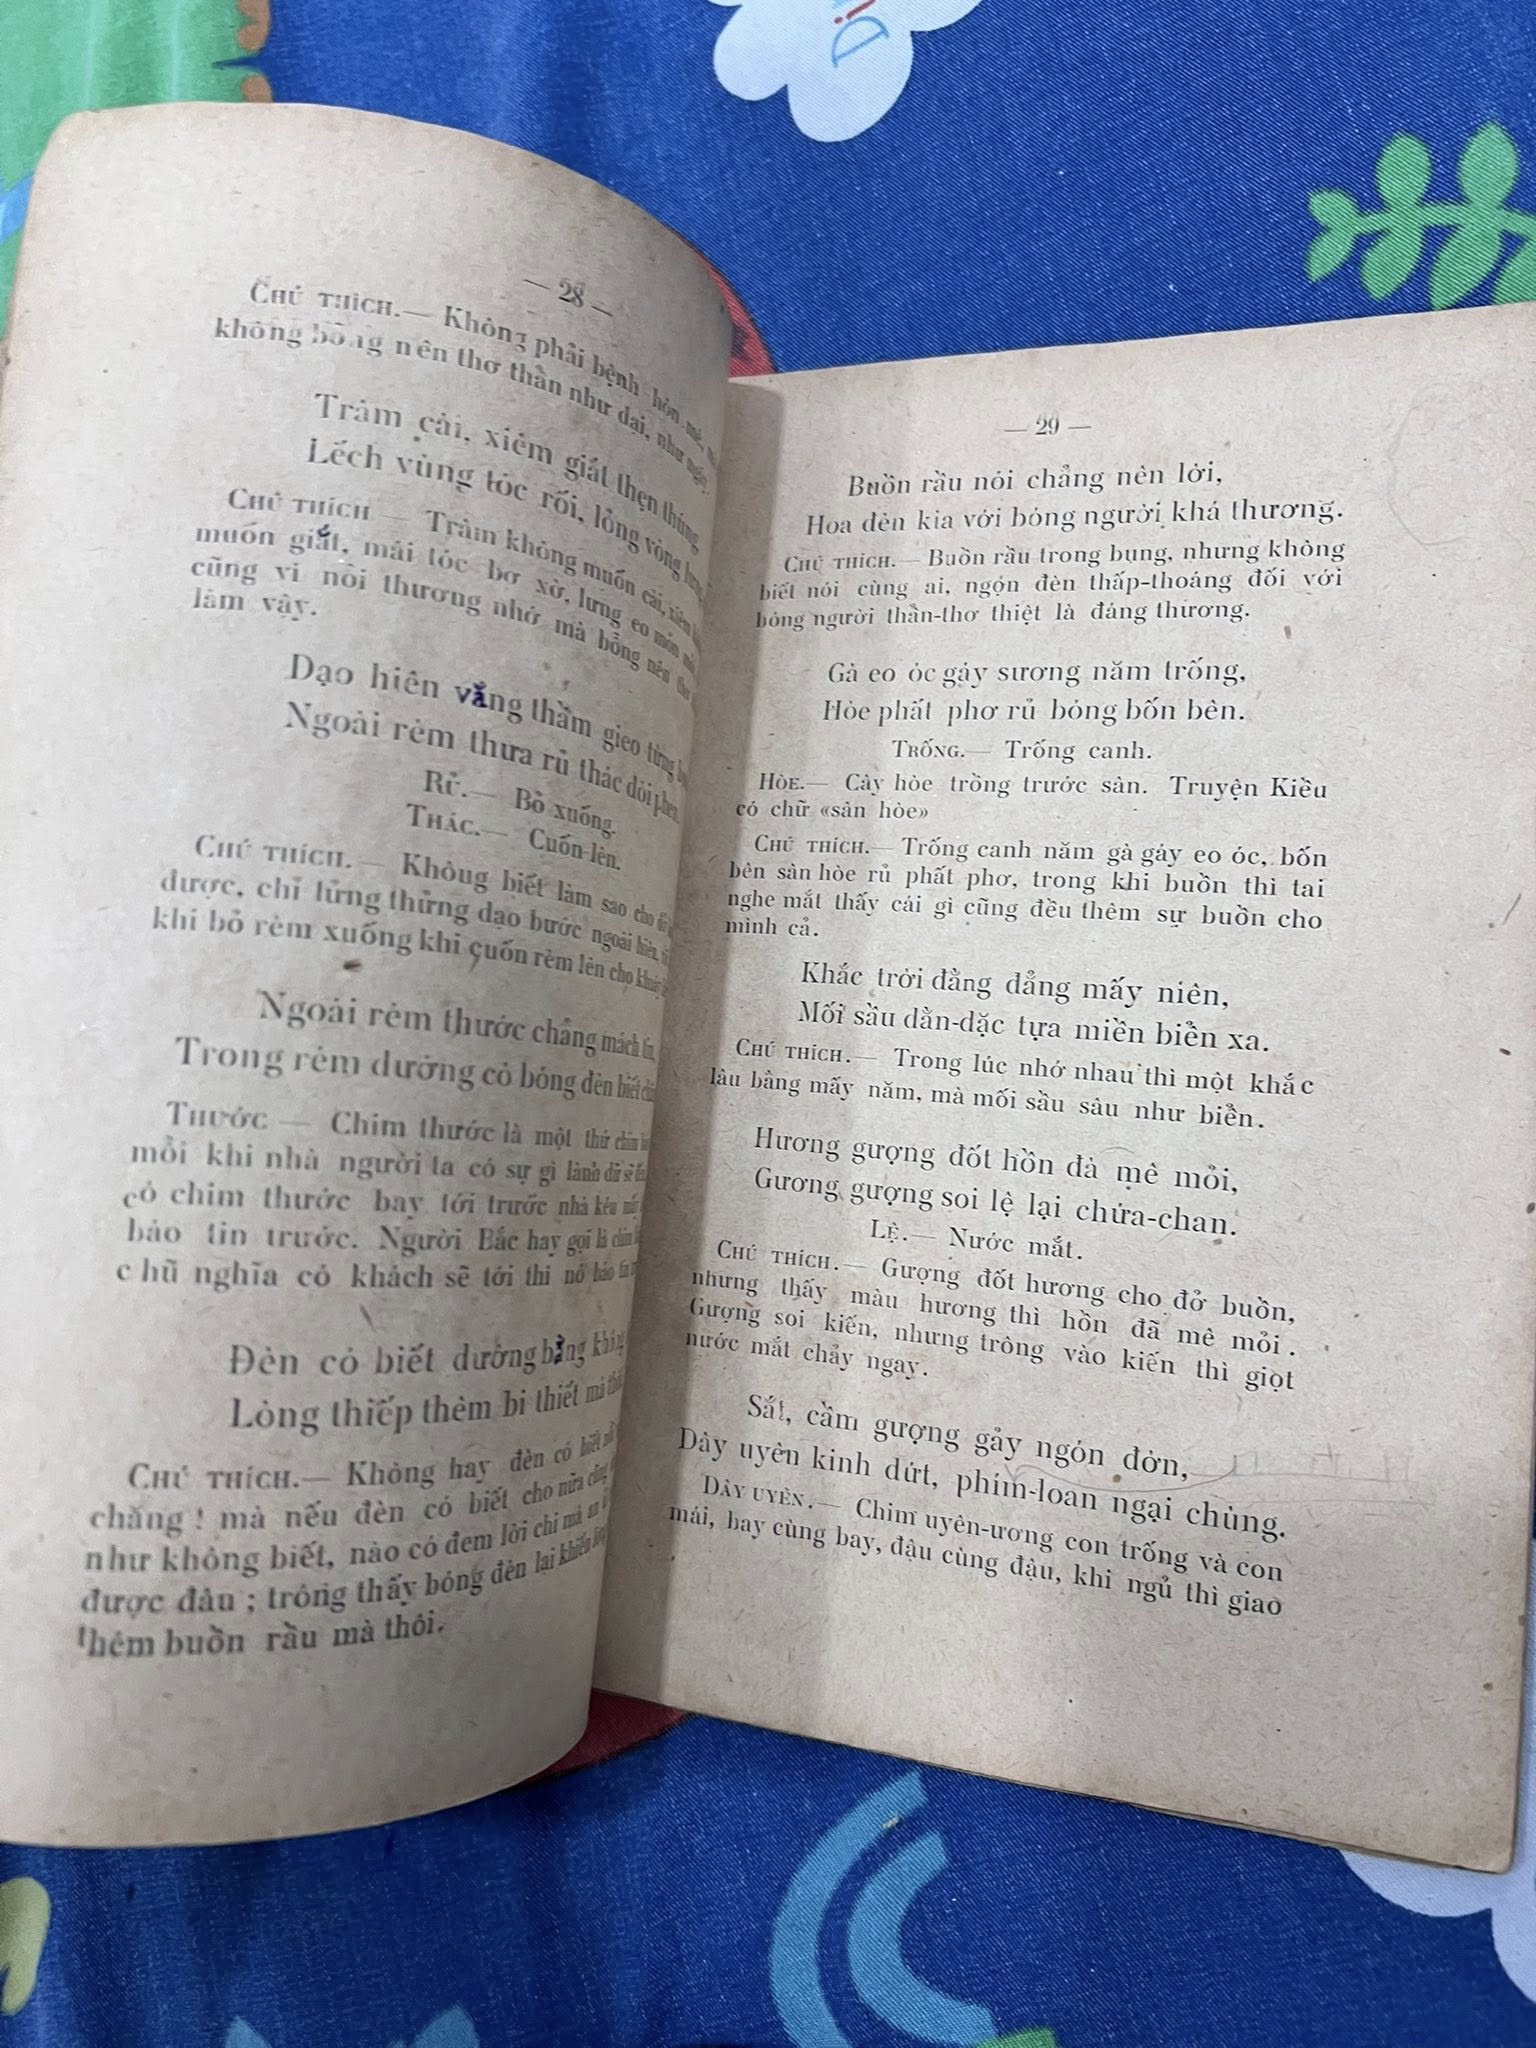 — 28 —
CHÚ THÍCH.— Không phải bệnh hôn mê,
không bỗng nên thơ thần như dại, như ngây.
Trâm cài, xiêm giắt thẹn thùng
Lếch vùng tóc rối, lỏng vòng lưng
CHÚ THÍCH — Trâm không muốn cài, xiêm
muốn giắt, mái tóc bơ xờ, lưng eo mòn
cũng vì nỗi thương nhớ mà bỗng nên
lắm vậy.
Dạo hiên vắng thầm gieo từng
Ngoài rèm thưa rủ thác đòi phen.
RỦ.— Bỏ xuống.
THÁC.— Cuốn lên.
CHÚ THÍCH.— Không biết làm sao cho
được, chỉ lửng thửng dạo bước ngoài hiên,
khi bỏ rèm xuống khi cuốn rèm lên cho
Ngoài rèm thước chẳng mách tin,
Trong rèm dường có bóng đèn biết
THƯỚC — Chim thước là một thứ chim
mỗi khi nhà người ta có sự gì lành dữ sẽ
có chim thước bay tới trước nhà kêu
bảo tin trước. Người Bắc hay gọi là chim
chữ nghĩa có khách sẽ tới thì nó báo tin
Đèn có biết dường bằng không
Lòng thiếp thêm bi thiết mà
CHÚ THÍCH.— Không hay đèn có biết
chăng ! mà nếu đèn có biết cho nữa cũng
như không biết, nào có đem lời chi mà
được đâu ; trông thấy bóng đèn lại khiến
thêm buồn rầu mà thôi.
— 29 —
Buồn rầu nói chẳng nên lời,
Hoa đèn kia với bóng người khá thương.
CHÚ THÍCH.— Buồn rầu trong bụng, nhưng không
biết nói cùng ai, ngọn đèn thấp-thoáng đối với
bóng người thần-thơ thiệt là đáng thương.
Gà eo óc gáy sương năm trống,
Hòe phất phơ rủ bóng bốn bên.
TRỐNG.— Trống canh.
HÒE.— Cây hòe trồng trước sân. Truyện Kiều
có chữ «sân hòe»
CHÚ THÍCH.— Trống canh năm gà gáy eo óc, bốn
bên sân hòe rủ phất phơ, trong khi buồn thì tai
nghe mắt thấy cái gì cũng đều thêm sự buồn cho
mình cả.
Khắc trời đằng đẳng mấy niên,
Mối sầu dằn-dặc tựa miền biển xa.
CHÚ THÍCH.— Trong lúc nhớ nhau thì một khắc
lâu bằng mấy năm, mà mối sầu sâu như biển.
Hương gượng đốt hồn đà mê mỏi,
Gương gượng soi lệ lại chứa-chan.
LỆ.— Nước mắt.
CHÚ THÍCH.— Gượng đốt hương cho đở buồn,
nhưng thấy màu hương thì hồn đã mê mỏi.
Gượng soi kiến, nhưng trông vào kiến thì giọt
nước mắt chảy ngay.
Sắt, cầm gượng gảy ngón đờn,
Dây uyên kinh dứt, phím-loan ngại chùng.
DÂY UYÊN.— Chim uyên-ương con trống và con
mái, bay cùng bay, đậu cùng đậu, khi ngủ thì giao